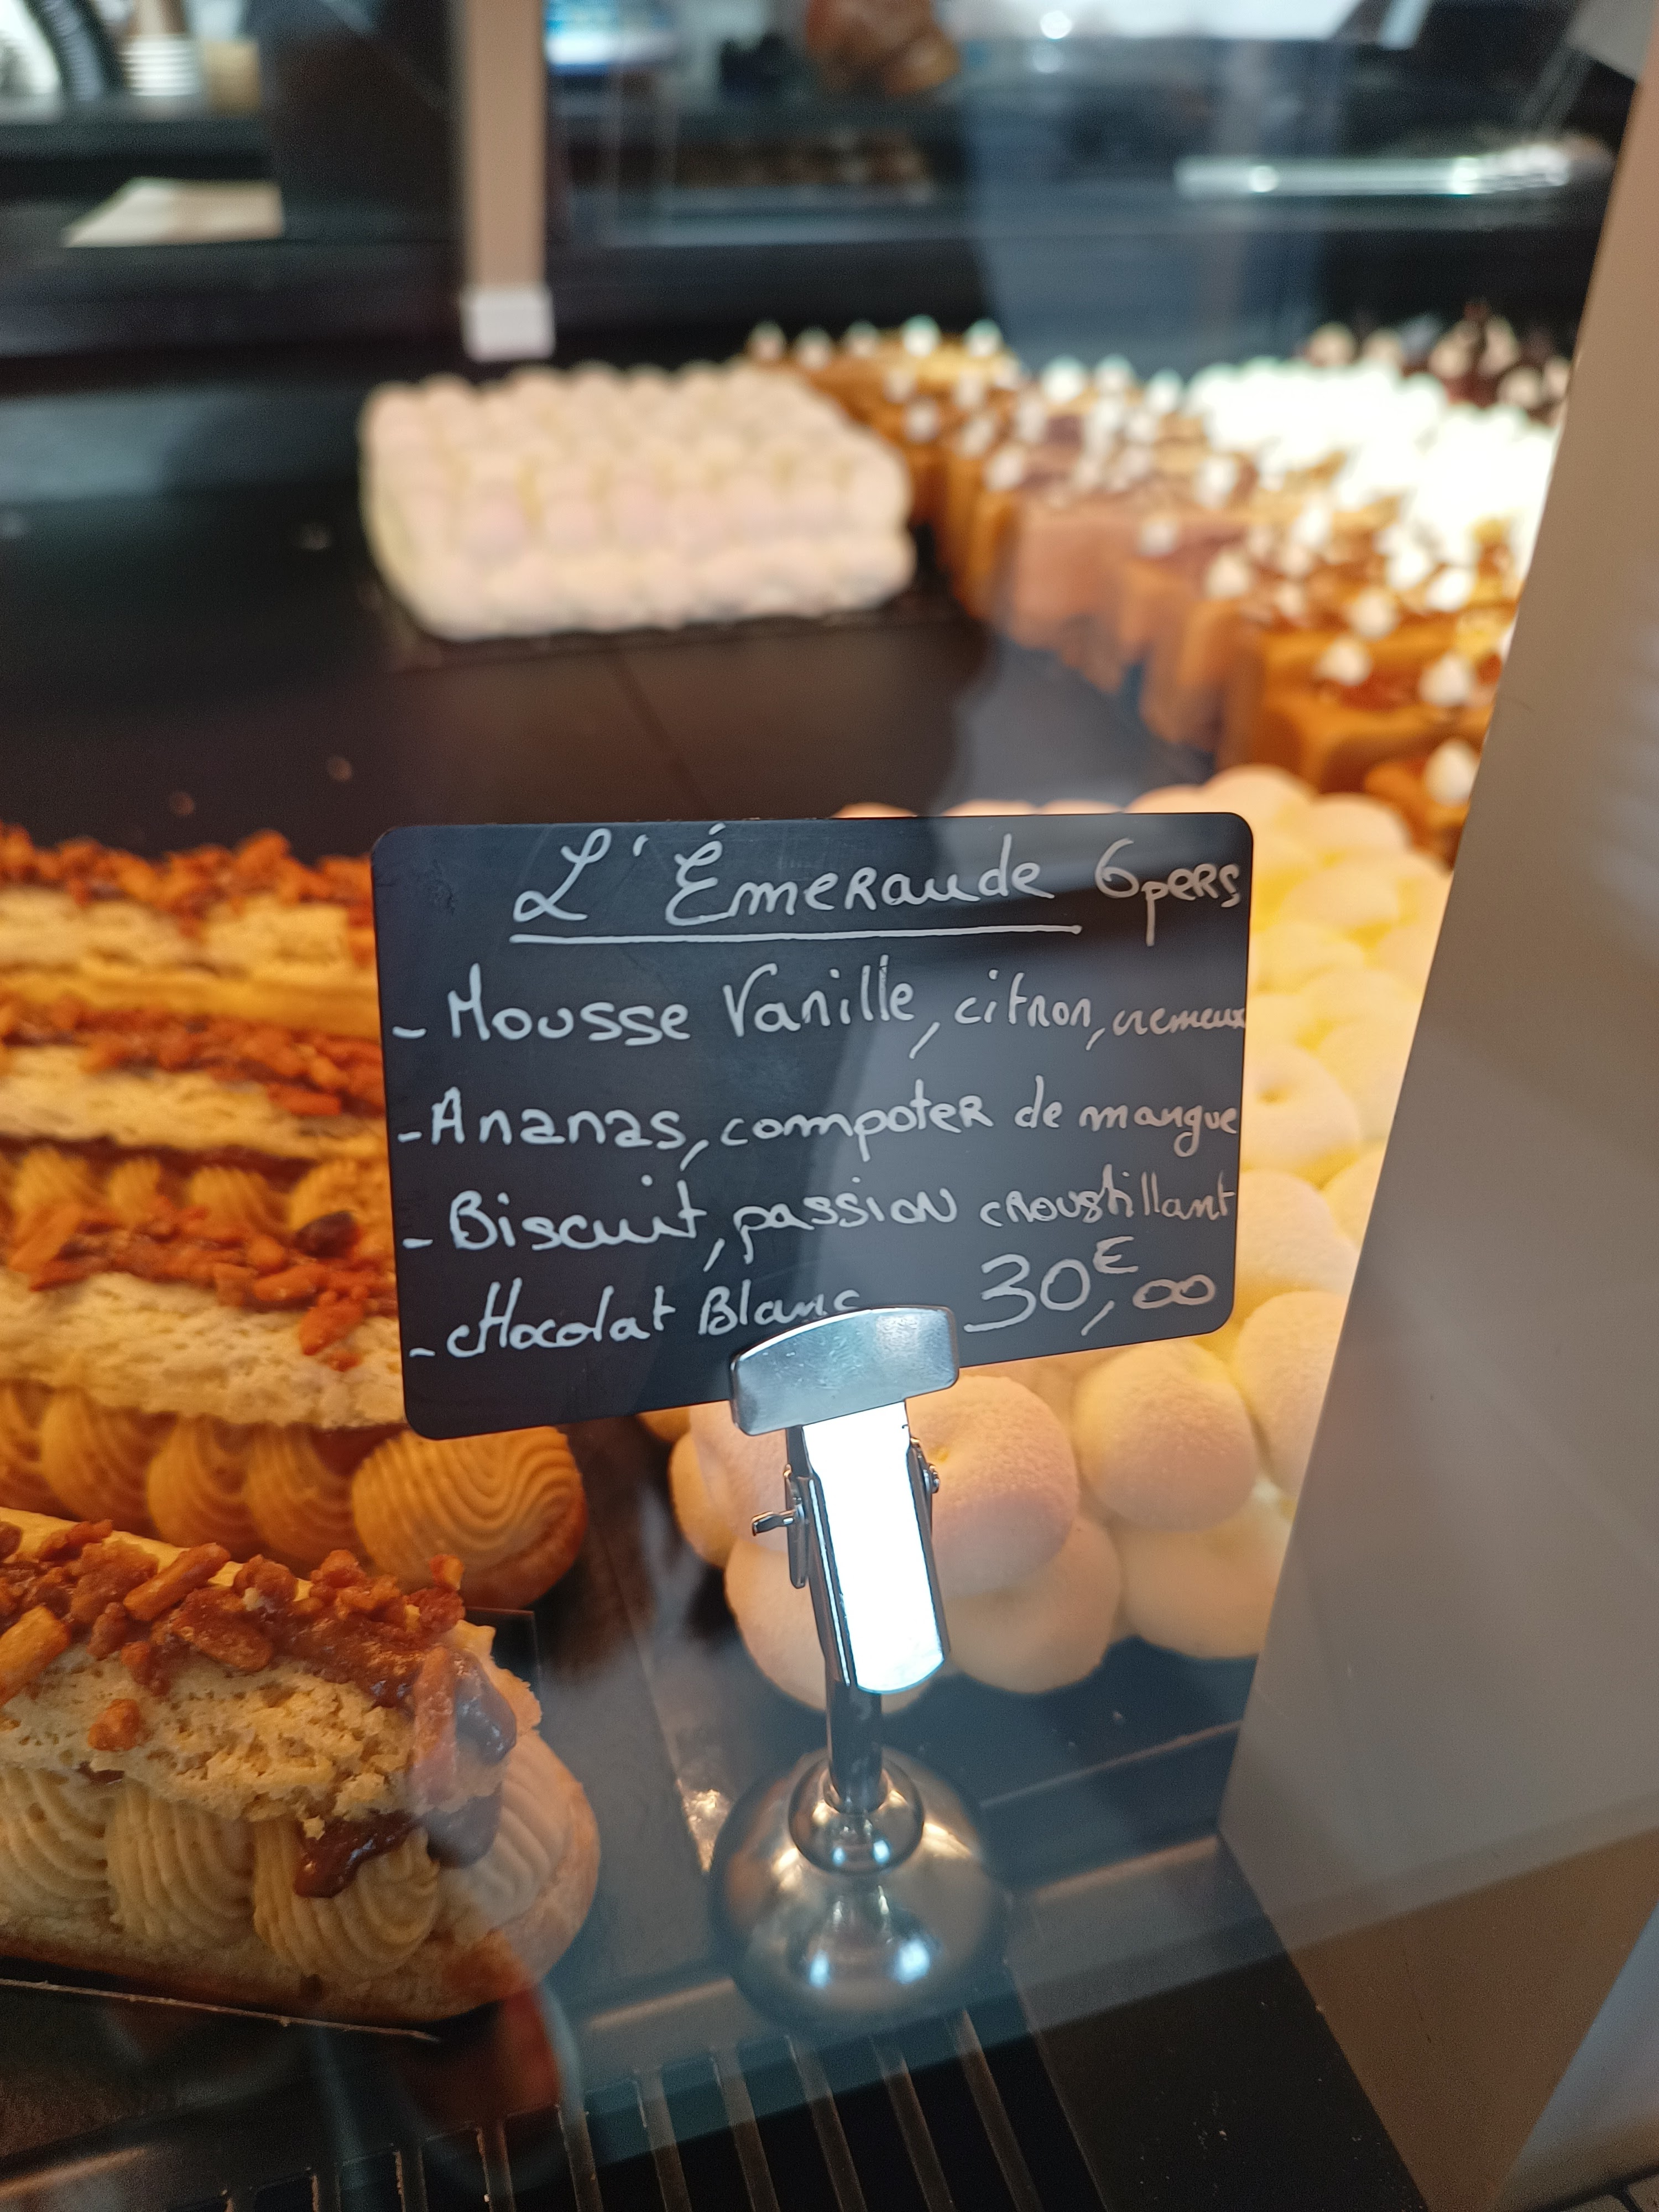 L'Émeraude 6pers
- Mousse Vanille, citron, cremeux
- Ananas, compoter de mangue
- Biscuit, passion croustillant
- chocolat Blanc 30€,00